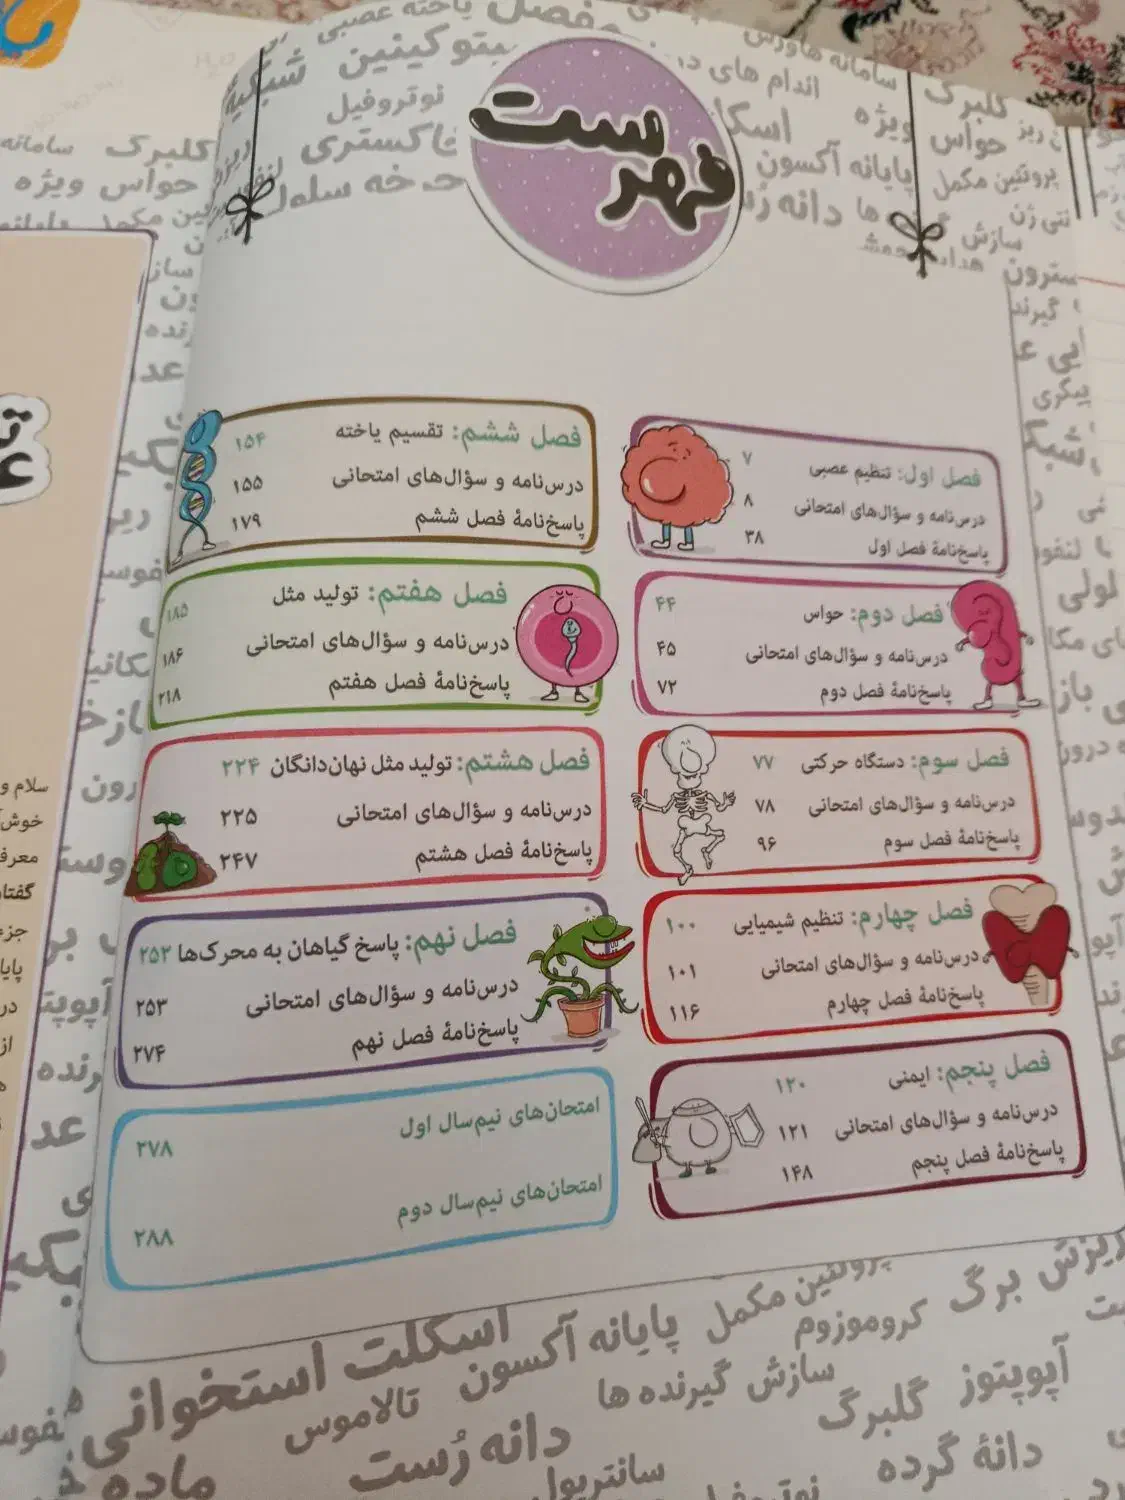 فهرست
فصل اول: تنظیم عصبی ۷
درس‌نامه و سؤال‌های امتحانی ۸
پاسخ‌نامهٔ فصل اول ۳۸
فصل دوم: حواس ۴۴
درس‌نامه و سؤال‌های امتحانی ۴۵
پاسخ‌نامهٔ فصل دوم ۷۲
فصل سوم: دستگاه حرکتی ۷۷
درس‌نامه و سؤال‌های امتحانی ۷۸
پاسخ‌نامهٔ فصل سوم ۹۶
فصل چهارم: تنظیم شیمیایی ۱۰۰
درس‌نامه و سؤال‌های امتحانی ۱۰۱
پاسخ‌نامهٔ فصل چهارم ۱۱۶
فصل پنجم: ایمنی ۱۲۰
درس‌نامه و سؤال‌های امتحانی ۱۲۱
پاسخ‌نامهٔ فصل پنجم ۱۴۸
فصل ششم: تقسیم یاخته ۱۵۴
درس‌نامه و سؤال‌های امتحانی ۱۵۵
پاسخ‌نامهٔ فصل ششم ۱۷۹
فصل هفتم: تولید مثل ۱۸۵
درس‌نامه و سؤال‌های امتحانی ۱۸۶
پاسخ‌نامهٔ فصل هفتم ۲۱۸
فصل هشتم: تولید مثل نهان‌دانگان ۲۲۴
درس‌نامه و سؤال‌های امتحانی ۲۲۵
پاسخ‌نامهٔ فصل هشتم ۲۴۷
فصل نهم: پاسخ گیاهان به محرک‌ها ۲۵۲
درس‌نامه و سؤال‌های امتحانی ۲۵۳
پاسخ‌نامهٔ فصل نهم ۲۷۴
امتحان‌های نیم‌سال اول ۲۷۸
امتحان‌های نیم‌سال دوم ۲۸۸
سیتوکینین شبکیهٔ
اندام های
نوتروفیل
ویژه
خاکستری
پایانه آکسون
کلبرگ
حواس
پروتئین مکمل
حواس ویژه
دانه رُست
سازش
اسکلت استخوانی
پایانه آکسون
پروتئین مکمل
کروموزوم
برگ
ریزش
تالاموس
سازش گیرنده ها
گلبرگ
آپوپتوز
ماده
دانه رُست
سانتریول
دانهٔ گرده
سلام و